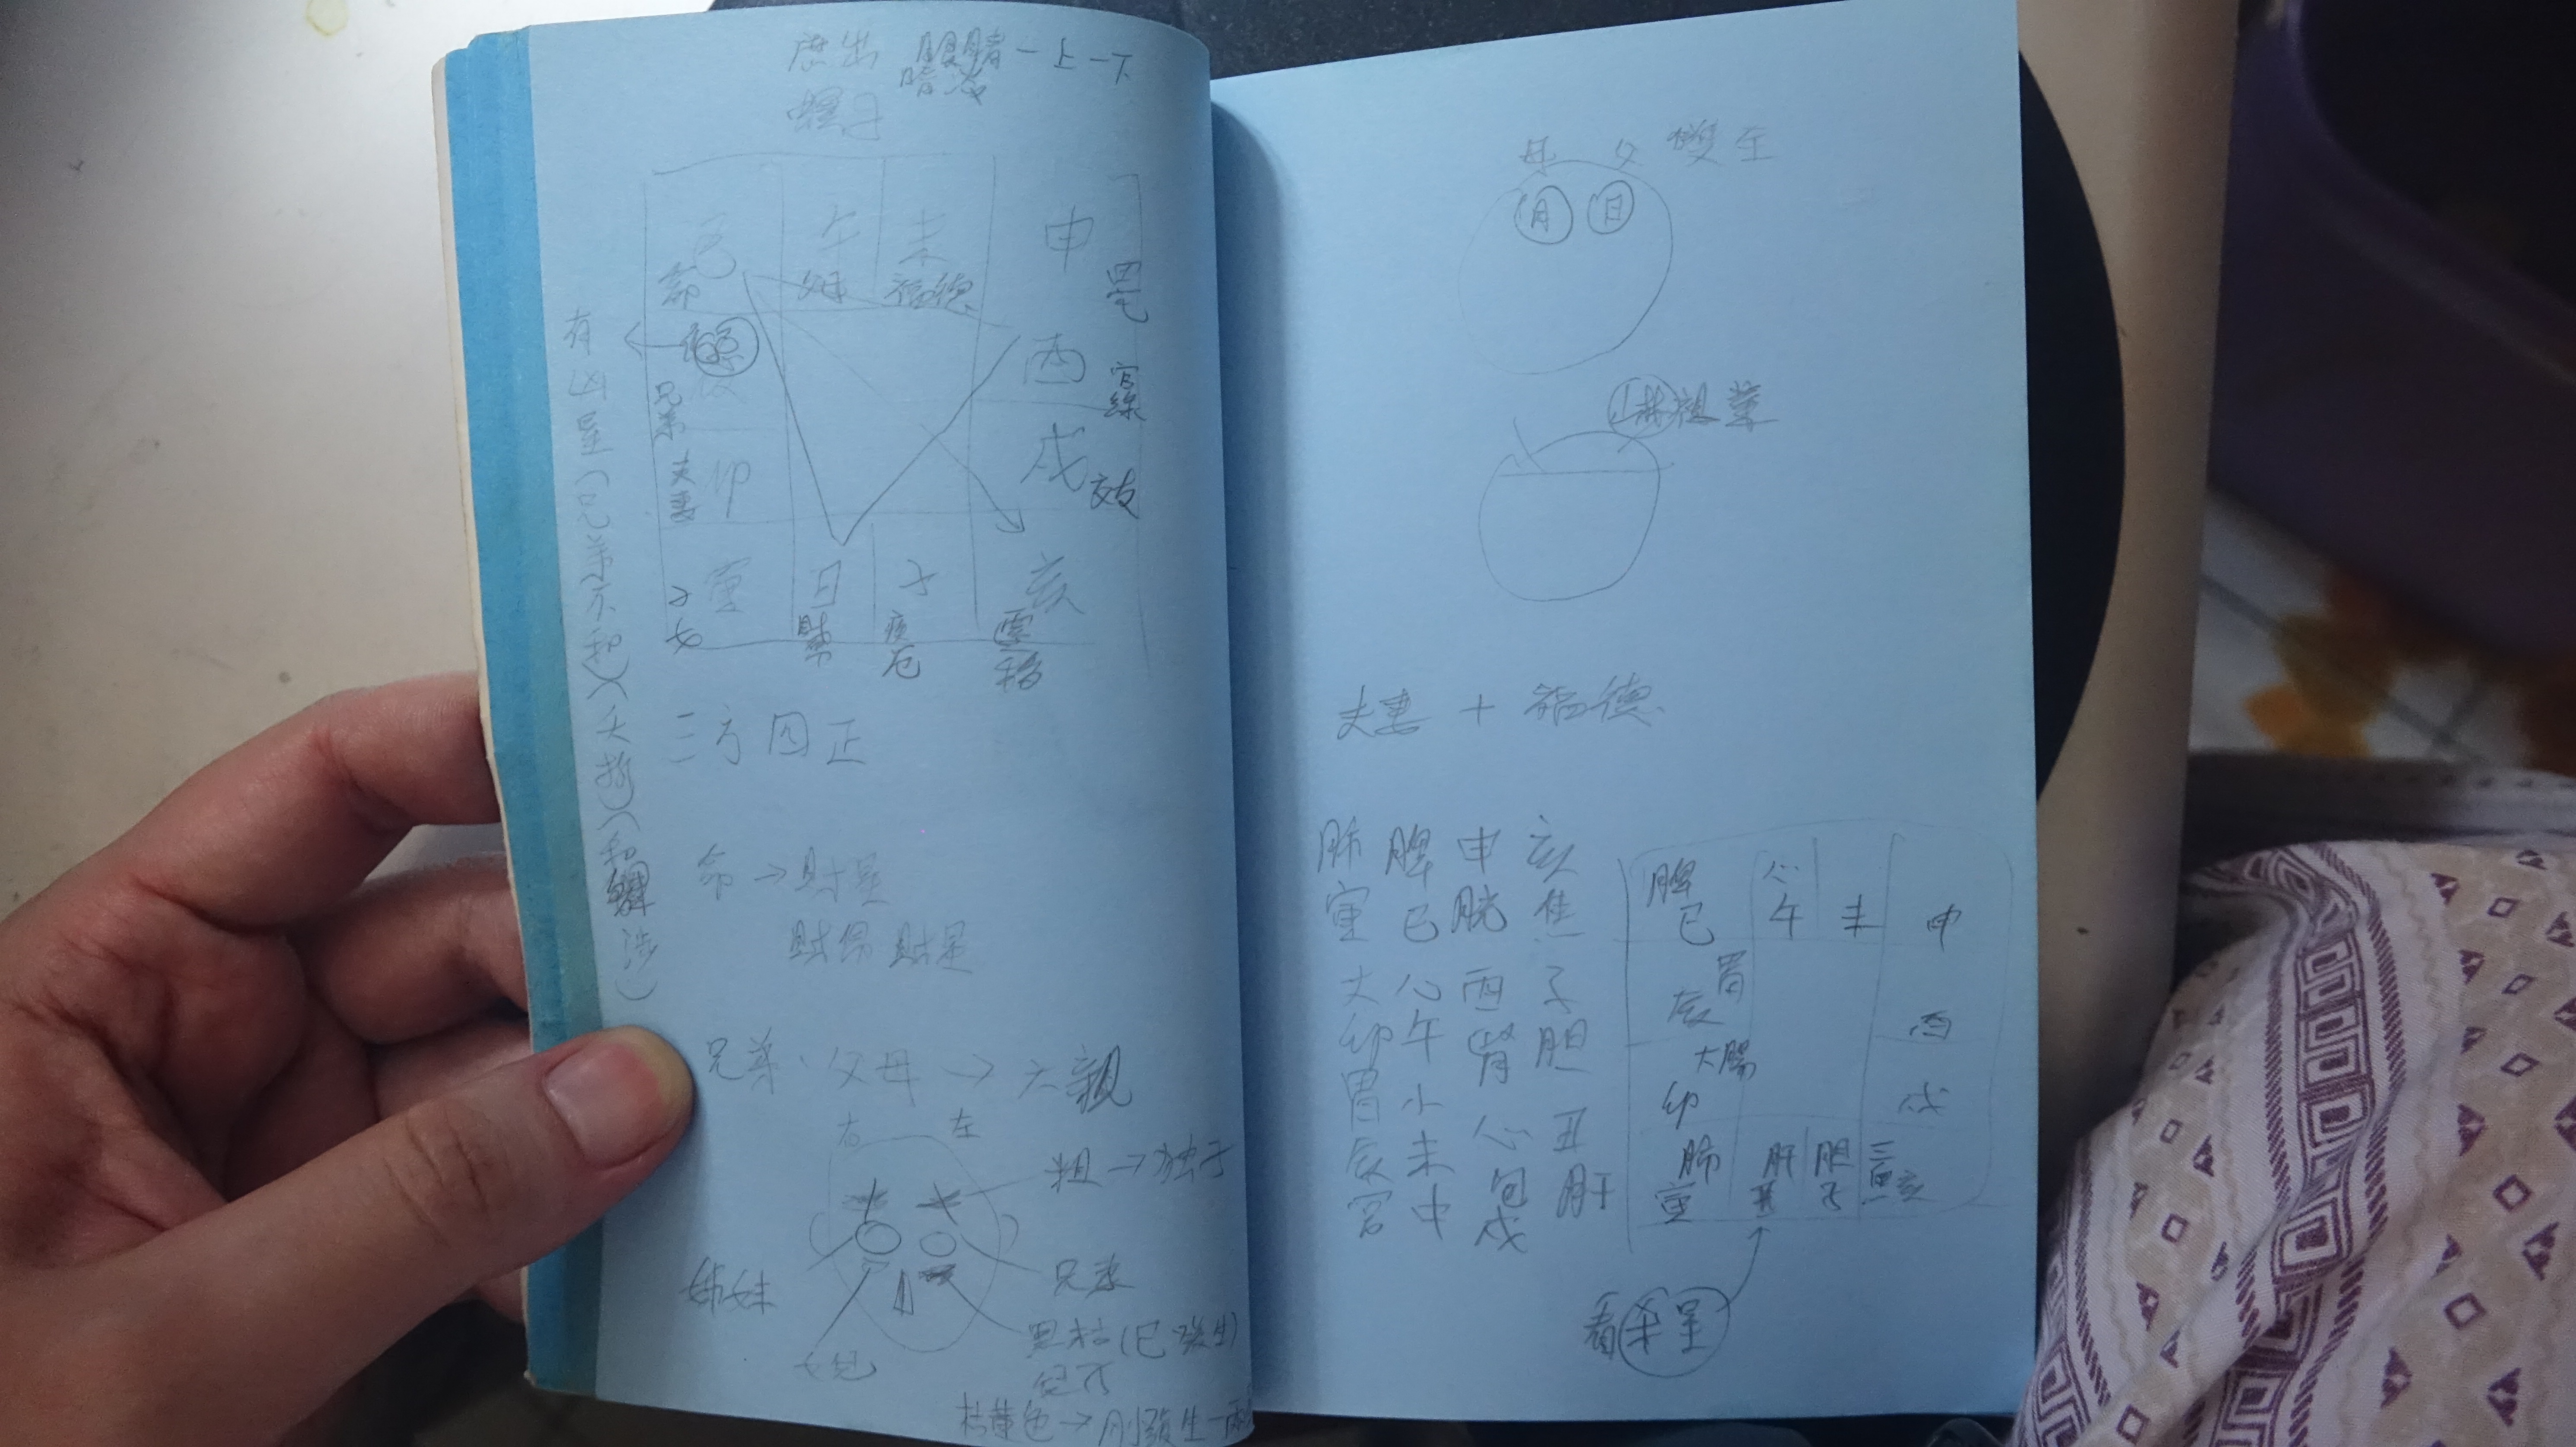 庶出 眼睛一上一下
巳 午 未 申
命 父母 福德
酉 官祿
兄弟
夫妻 卯 戌 交友
子女 寅 日 子 亥
財帛 疾厄 遷移
有凶星(兄弟不和)(夭折)(
三方四正
命→財星
財帛 財星
兄弟·父母→六親
右 左
粗→独子
姊妹 兄弟
女兒
(已發生)
枯黄色→刚發生一兩
母 父 雙全
月 日
祖業
夫妻+福德
肺 脾 申 亥
寅 巳 胱 焦
大 心 酉 子
卯 午 腎 胆
胃 小 心 丑
辰 未 包 肝
宮 中 戌
脾 心
巳 午 未 申
胃
辰 酉
大腸
卯 戌
肺 肝 胆 三
寅 丑 子 焦亥
看